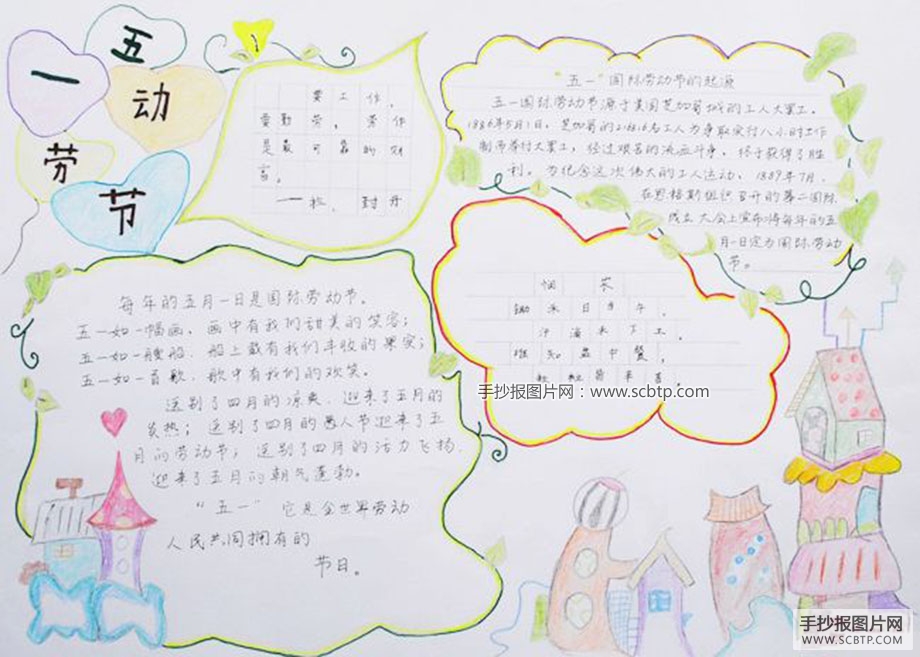 五一
劳动
节
要工作,
要勤劳。劳作
是最可靠的财
富。
——拉、封丹
“五一”国际劳动节的起源
五一国际劳动节源于美国芝加哥城的工人大罢工。
1886年5月1日,芝加哥的216816名工人为争取实行八小时工作
制而举行大罢工,经过艰苦的流血斗争,终于获得了胜
利。为纪念这次伟大的工人运动、1889年7月,
在恩格斯组织召开的第二国际
成立大会上宣布将每年的五
月一日定为国际劳动
节。
悯农
锄禾日当午,
汗滴禾下土。
谁知盘中餐,
粒粒皆辛苦。
每年的五月一日是国际劳动节。
五一如一幅画,画中有我们甜美的笑容;
五一如一艘船,船上载有我们丰收的果实;
五一如一首歌,歌中有我们的欢笑。
送别了四月的凉爽 迎来了五月的
炎热;送别了四月的愚人节迎来了五
月的劳动节;送别了四月的活力飞扬
迎来了五月的朝气蓬勃。
“五一”它是全世界劳动
人民共同拥有的
节日。
手抄报图片网:www.scbtp.com
手抄报图片网
WWW.SCBTP.COM